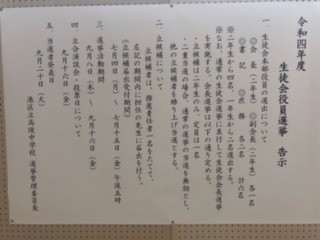 令和四年度
生徒会役員選挙 告示
一、生徒会本部役員の選出について
◎会長（二年生）◎副会長（二年生）各一名
◎書記 ◎庶務 各二名 計六名
※二年生から四名、一年生から二名選出する。
※なお、通常の生徒会選挙に並行して生徒会会長選挙
を実施する。会長選挙は以下の通り定める。
・立候補は二年生のみ、定員は一名
・二重当選の場合、通常の選挙の当選を無効とし、
他の立候補者を繰り上げ当選とする。
二、立候補について
立候補者は、推薦責任者一名をたてて、
左記の期間内に担任の先生に届出を行う。
《立候補届出受付期間》
七月四日（月）～七月十五日（金）午後五時
三、選挙活動期間
九月八日（木）～ 九月十六日（金）
四、立会演説会・投票日について
九月十六日（金）
五、当選者発表日
九月二十日（火）
港区立高陵中学校 選挙管理委員長